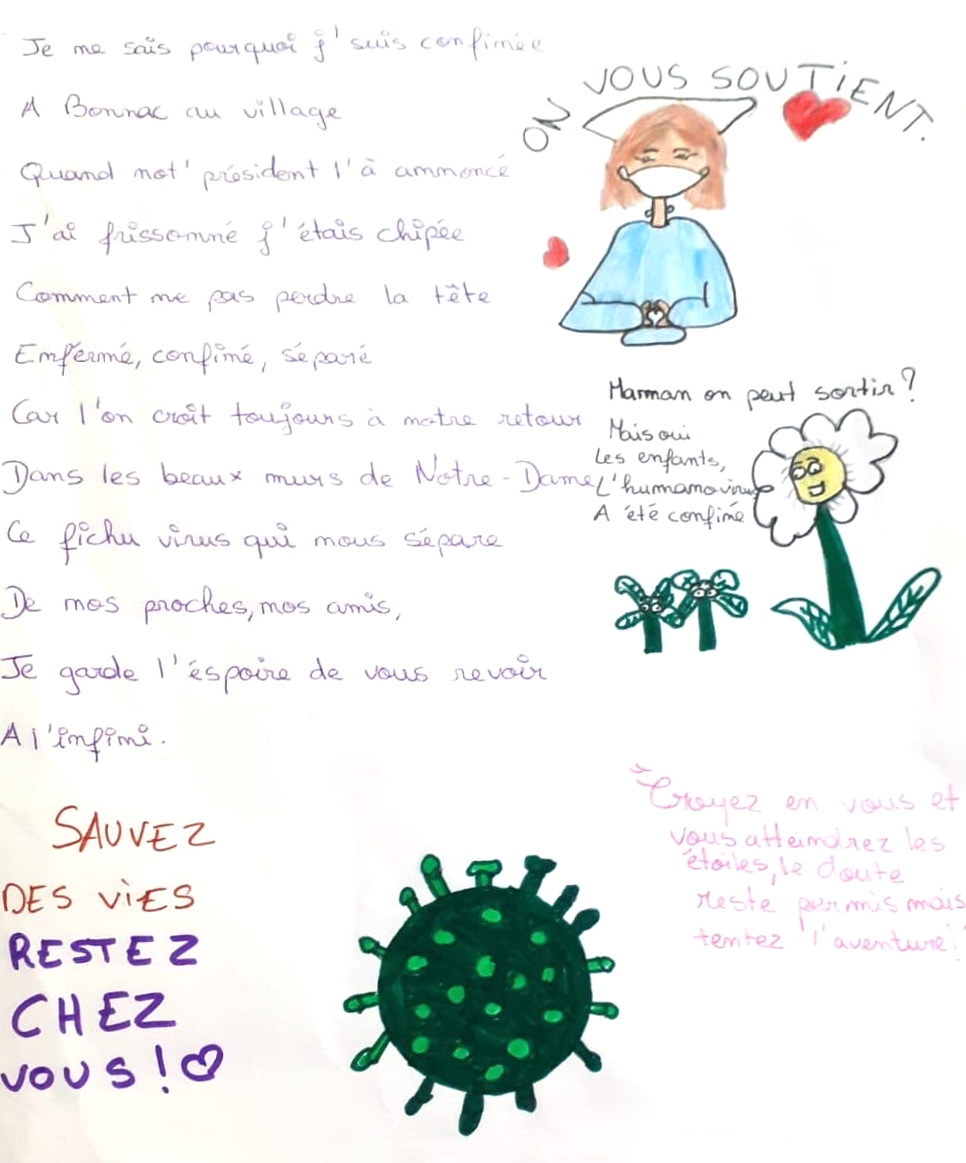 Je ne sais pourquoi j'suis confinée
A Bonnac au village
Quand not' président l'à annoncé
J'ai frissonné j'étais chipée
Comment ne pas perdre la tête
Enférmé, confiné, séparé
Car l'on croit toujours à notre retour
Dans les beaux murs de Notre-Dame
Ce fichu virus qui nous sépare
De nos proches, nos amis,
Je garde l'éspoire de vous revoir
A l'infini.
ON VOUS SOUTIENT.
Maman on peut sortir?
Mais oui
Les enfants,
L'humanovirus
A été confiné
SAUVEZ
DES VIES
RESTEZ
CHEZ
VOUS!
"Croyez en vous et
vous atteindrez les
étoiles, le doute
reste permis mais
tentez l'aventure!"